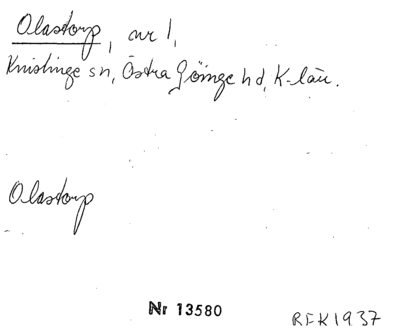 Olastorp, nr 1,
Knislinge sn, Östra Göinge hd, K-län.
Olastorp
Nr 13580
REK1937